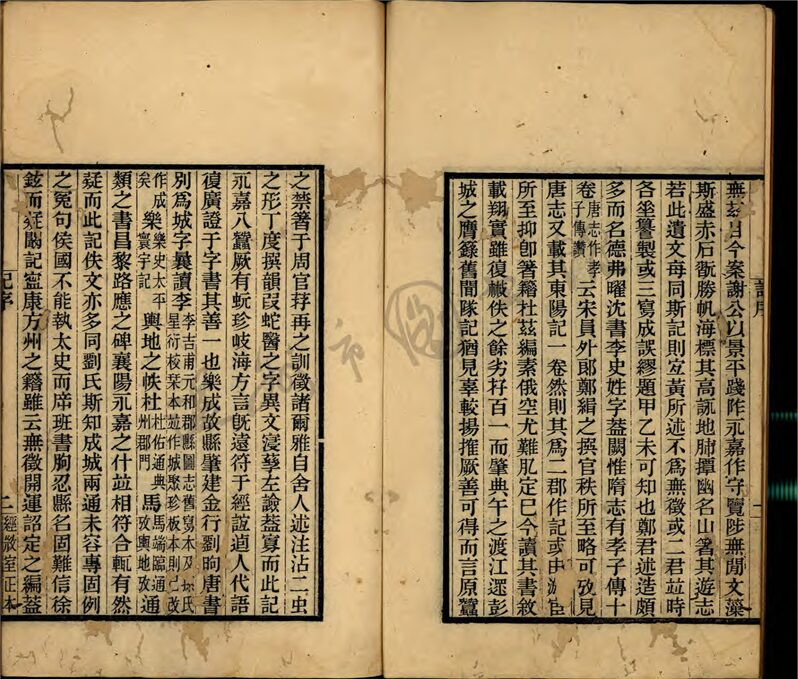 無𦯔日今案謝公以景平踐阼永嘉作守覽陟無閒文藻
斯盛赤石翫勝帆海標其高詠地肺撢幽名山箸其遊志
若此遺文毋同斯記則宐黃所述不爲無徵或二君竝時
各坙纂製或三寫成誤繆題甲乙未可知也鄭君述造頗
多而名德弗曜沈書李史姓字葢闕惟隋志有孝子傳十
卷唐志作孝子傳讚云宋員外郞鄭緝之撰官秩所至略可攷見
唐志又載其東陽記一卷然則其爲二郡作記或由游宦
所至抑卽箸籍杜玆編素俄空尤難肊定巳今讀其書敘
載翔實雖復幟佚之餘劣有百一而肇典午之渡江遝彭
城之膺籙舊聞隊記猶見辜較揚搉厥善可得而言原蠶
之禁箸于周官䍧再之訓徵諸爾雅自舍人述注沾二虫
之形丁度撰韻叚蛇醫之字異文寖孳左譣葢寡而此記
永嘉八蠶厥有蚖珍岐海方言旣遠符于經誼逌人代語
復廣證于字書其善一也樂成故縣肇建金行劉昫唐書
別爲城字曩讀李李吉甫元和郡縣圖志舊寫本及孫氏星衍校栞本竝作城聚珍板本則已改作成樂樂史太平寰宇記輿地之帙杜杜佑通典州郡門馬馬端臨通攷輿地攷通
矣
類之書昌黎路應之碑襄陽永嘉之什竝相符合輒有然
疑而此記佚文亦多同劉氏斯知成城兩通未容專固例
之冤句侯國不能執太史而席班書朐忍縣名固難信徐
鉉而疑闞記寍康方州之籍雖云無徵開運詔定之編葢
記序
二經𢾾室正本